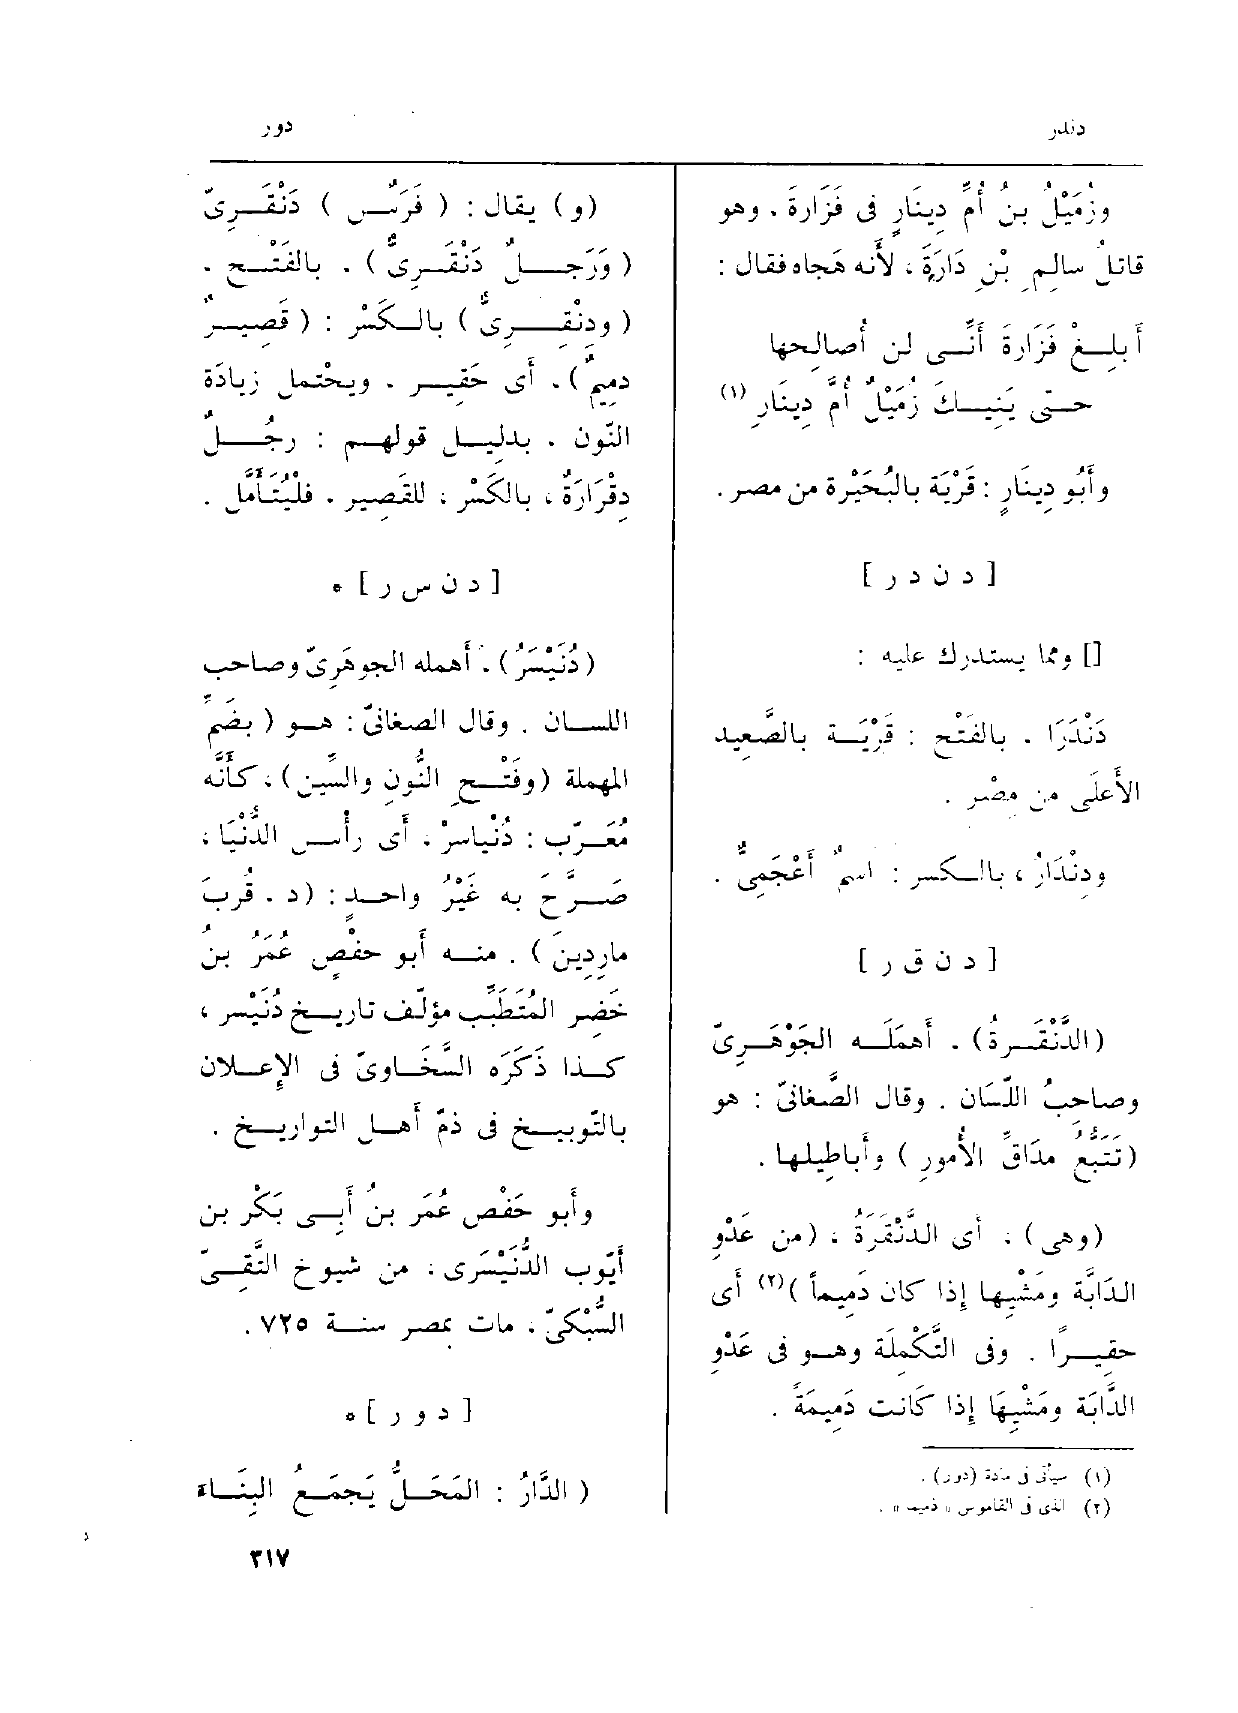 دندر
دور
وزُمَيْلُ بنُ أُمِّ دِينَارٍ فى فَزَارةَ ، وهو
قاتلُ سالِمِ بْنِ دَارَةَ ، لأنه هَجاه فقال :
أَبلِغْ فَزَارةَ أَنِّى لن أُصالِحها
حتى يَنِيكَ زُمَيْلٌ أُمَّ دِينَارِ (١)
وأَبُو دِينَارٍ : قَرْيَة بالبُحَيْرة من مصر .
[ د ن د ر ]
[] ومما يستدرك عليه :
دَنْدَرَا ، بالفَتْح : قَرْيَة بالصَّعِيد
الأَعلَى من مِصْر .
ودِنْدَارٌ ، بالكسر : اسمٌ أَعْجَمِىٌّ .
[ د ن ق ر ]
(الدَّنْقَرةُ) ، أَهمَلَه الجَوْهَرِىّ
وصاحبُ اللِّسَان . وقال الصَّغانىّ : هو
(تَتَبُّعُ مَدَاقِّ الأُمورِ ) وأَباطِيلها .
(وهى) ، أَى الدَّنْقَرَة ، (من عَدْوِ
الدَابَّة ومَشْيِها إذا كان دَمِيماً )(٢) أَى
حقيرًا . وفى التَّكْمِلَة وهو فى عَدْوِ
الدَّابَّة ومَشْيِهَا إذا كَانت دَمِيمَةً .
(١) سيأتى فى مادة (دور) .
(٢) الذى فى القاموس « ذميما » .
(و) يقال : ( فَرَسٌ ) دَنْقَرِىّ
( وَرَجلٌ دَنْقَرِىٌّ ) ، بالفَتْح ،
( ودِنْقِرِىٌّ ) بالكَسْرِ : ( قَصِيرٌ
دمِيمٌ) ، أَى حَقِير ، ويحْتمل زيادَة
النّون ، بدلِيل قولهم : رجُلٌ
دِقْرَارَةٌ ، بالكَسْر ، للقَصِير ، فلْيُتَأَمَّل .
[ د ن س ر ] *
(دُنَيْسَرُ) ، أَهمله الجوهَرِىّ وصاحب
اللسان . وقال الصغانىّ : هو ( بِضَمِّ
المهملة (وفَتْحِ النُّون والسِّين) ، كأَنَّه
مُعَرّب : دُنْياسرْ ، أَى رأْس الدُّنْيَا ،
صَرَّحَ به غَيْرُ واحدٍ : (د ، قُربَ
مارِدِينَ ) ، منه أَبو حفْصٍ عُمَرُ بنُ
خَضِر المُتَطَبِّب مؤلّف تاريخ دُنَيْسر ،
كذا ذَكَرَه السَّخَاوىّ فى الإِعلان
بالتّوبيخ فى ذمّ أَهل التواريخ .
وأَبو حَفْص عُمَر بنُ أَبِى بَكْر بن
أَيّوب الدُّنَيْسَرى ، من شيوخ التَّقِىّ
السُّبْكىّ ، مات بمصر سنة ٧٢٥ .
[ د و ر ] *
( الدَّارُ : المَحَلُّ يَجمَعُ البِنَاءَ
٣١٧